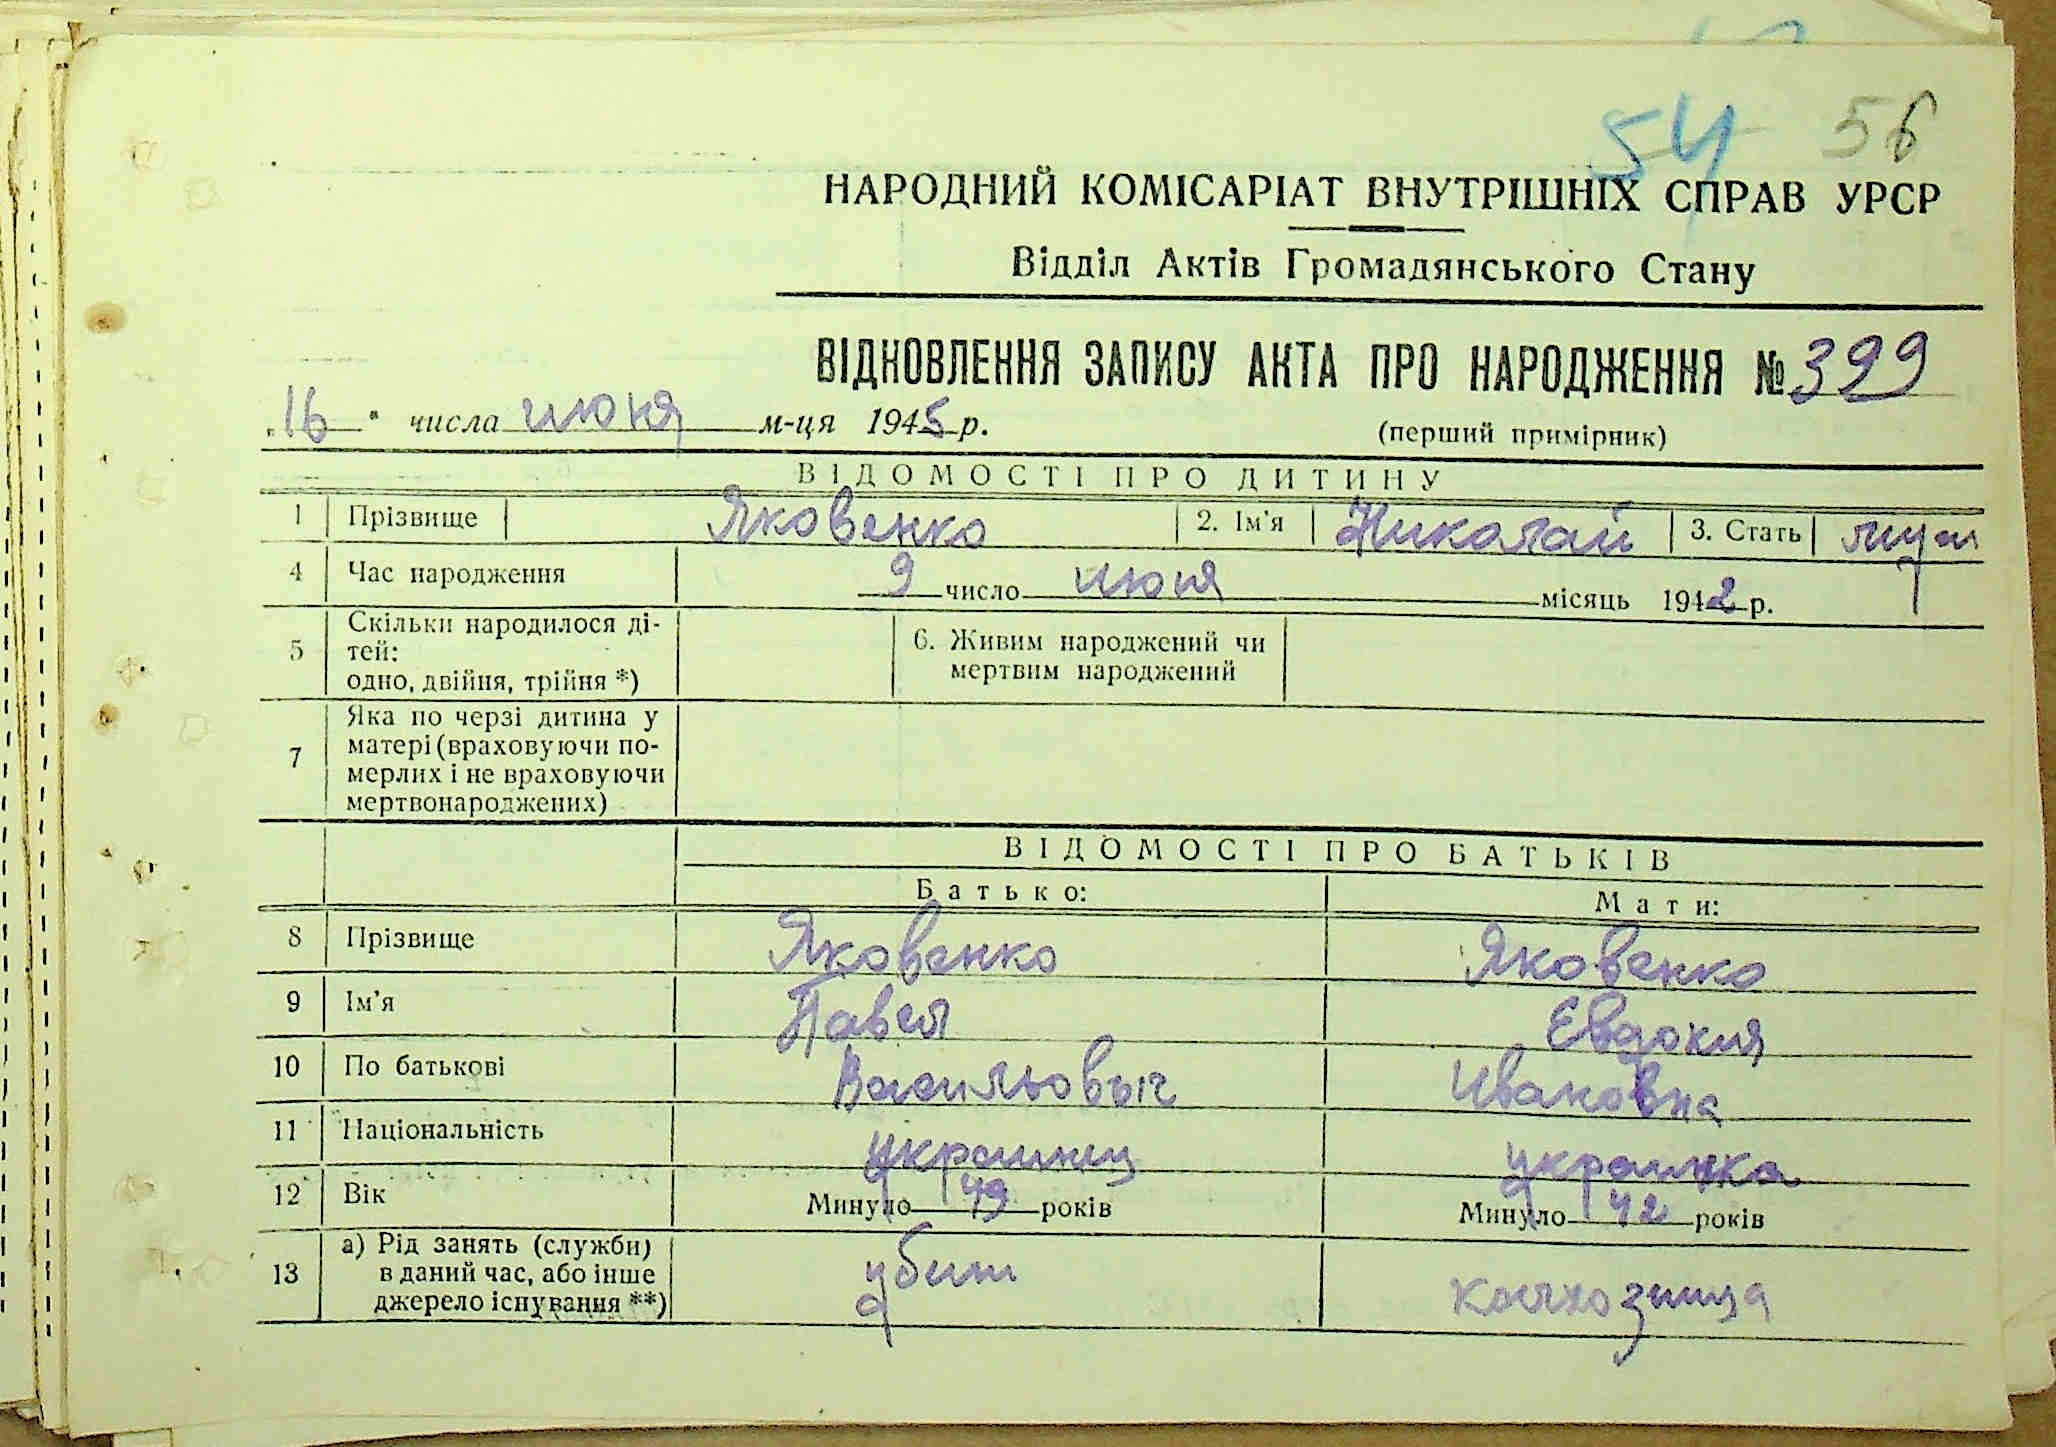 54 56
НАРОДНИЙ КОМІСАРІАТ ВНУТРІШНІХ СПРАВ УРСР
Відділ Актів Громадянського Стану
ВІДНОВЛЕННЯ ЗАПИСУ АКТА ПРО НАРОДЖЕННЯ № 399
„16" числа июня м-ця 1945 р. (перший примірник)
ВІДОМОСТІ ПРО ДИТИНУ
1 Прізвище Яковенко 2. Ім'я Николай 3. Стать муж
4 Час народження 9 число июня місяць 1942 р.
5 Скільки народилося ді-
тей:
одно, двійня, трійня *)
6. Живим народжений чи
мертвим народжений
7 Яка по черзі дитина у
матері (враховуючи по-
мерлих і не враховуючи
мертвонароджених)
ВІДОМОСТІ ПРО БАТЬКІВ
Батько: Мати:
8 Прізвище Яковенко Яковенко
9 Ім'я Павел Евдокия
10 По батькові Васильовыч Ивановна
11 Національність украинец украинка
12 Вік Минуло 49 років Минуло 42 років
13 а) Рід занять (служби)
в даний час, або інше
джерело існування **)
убит колхозница